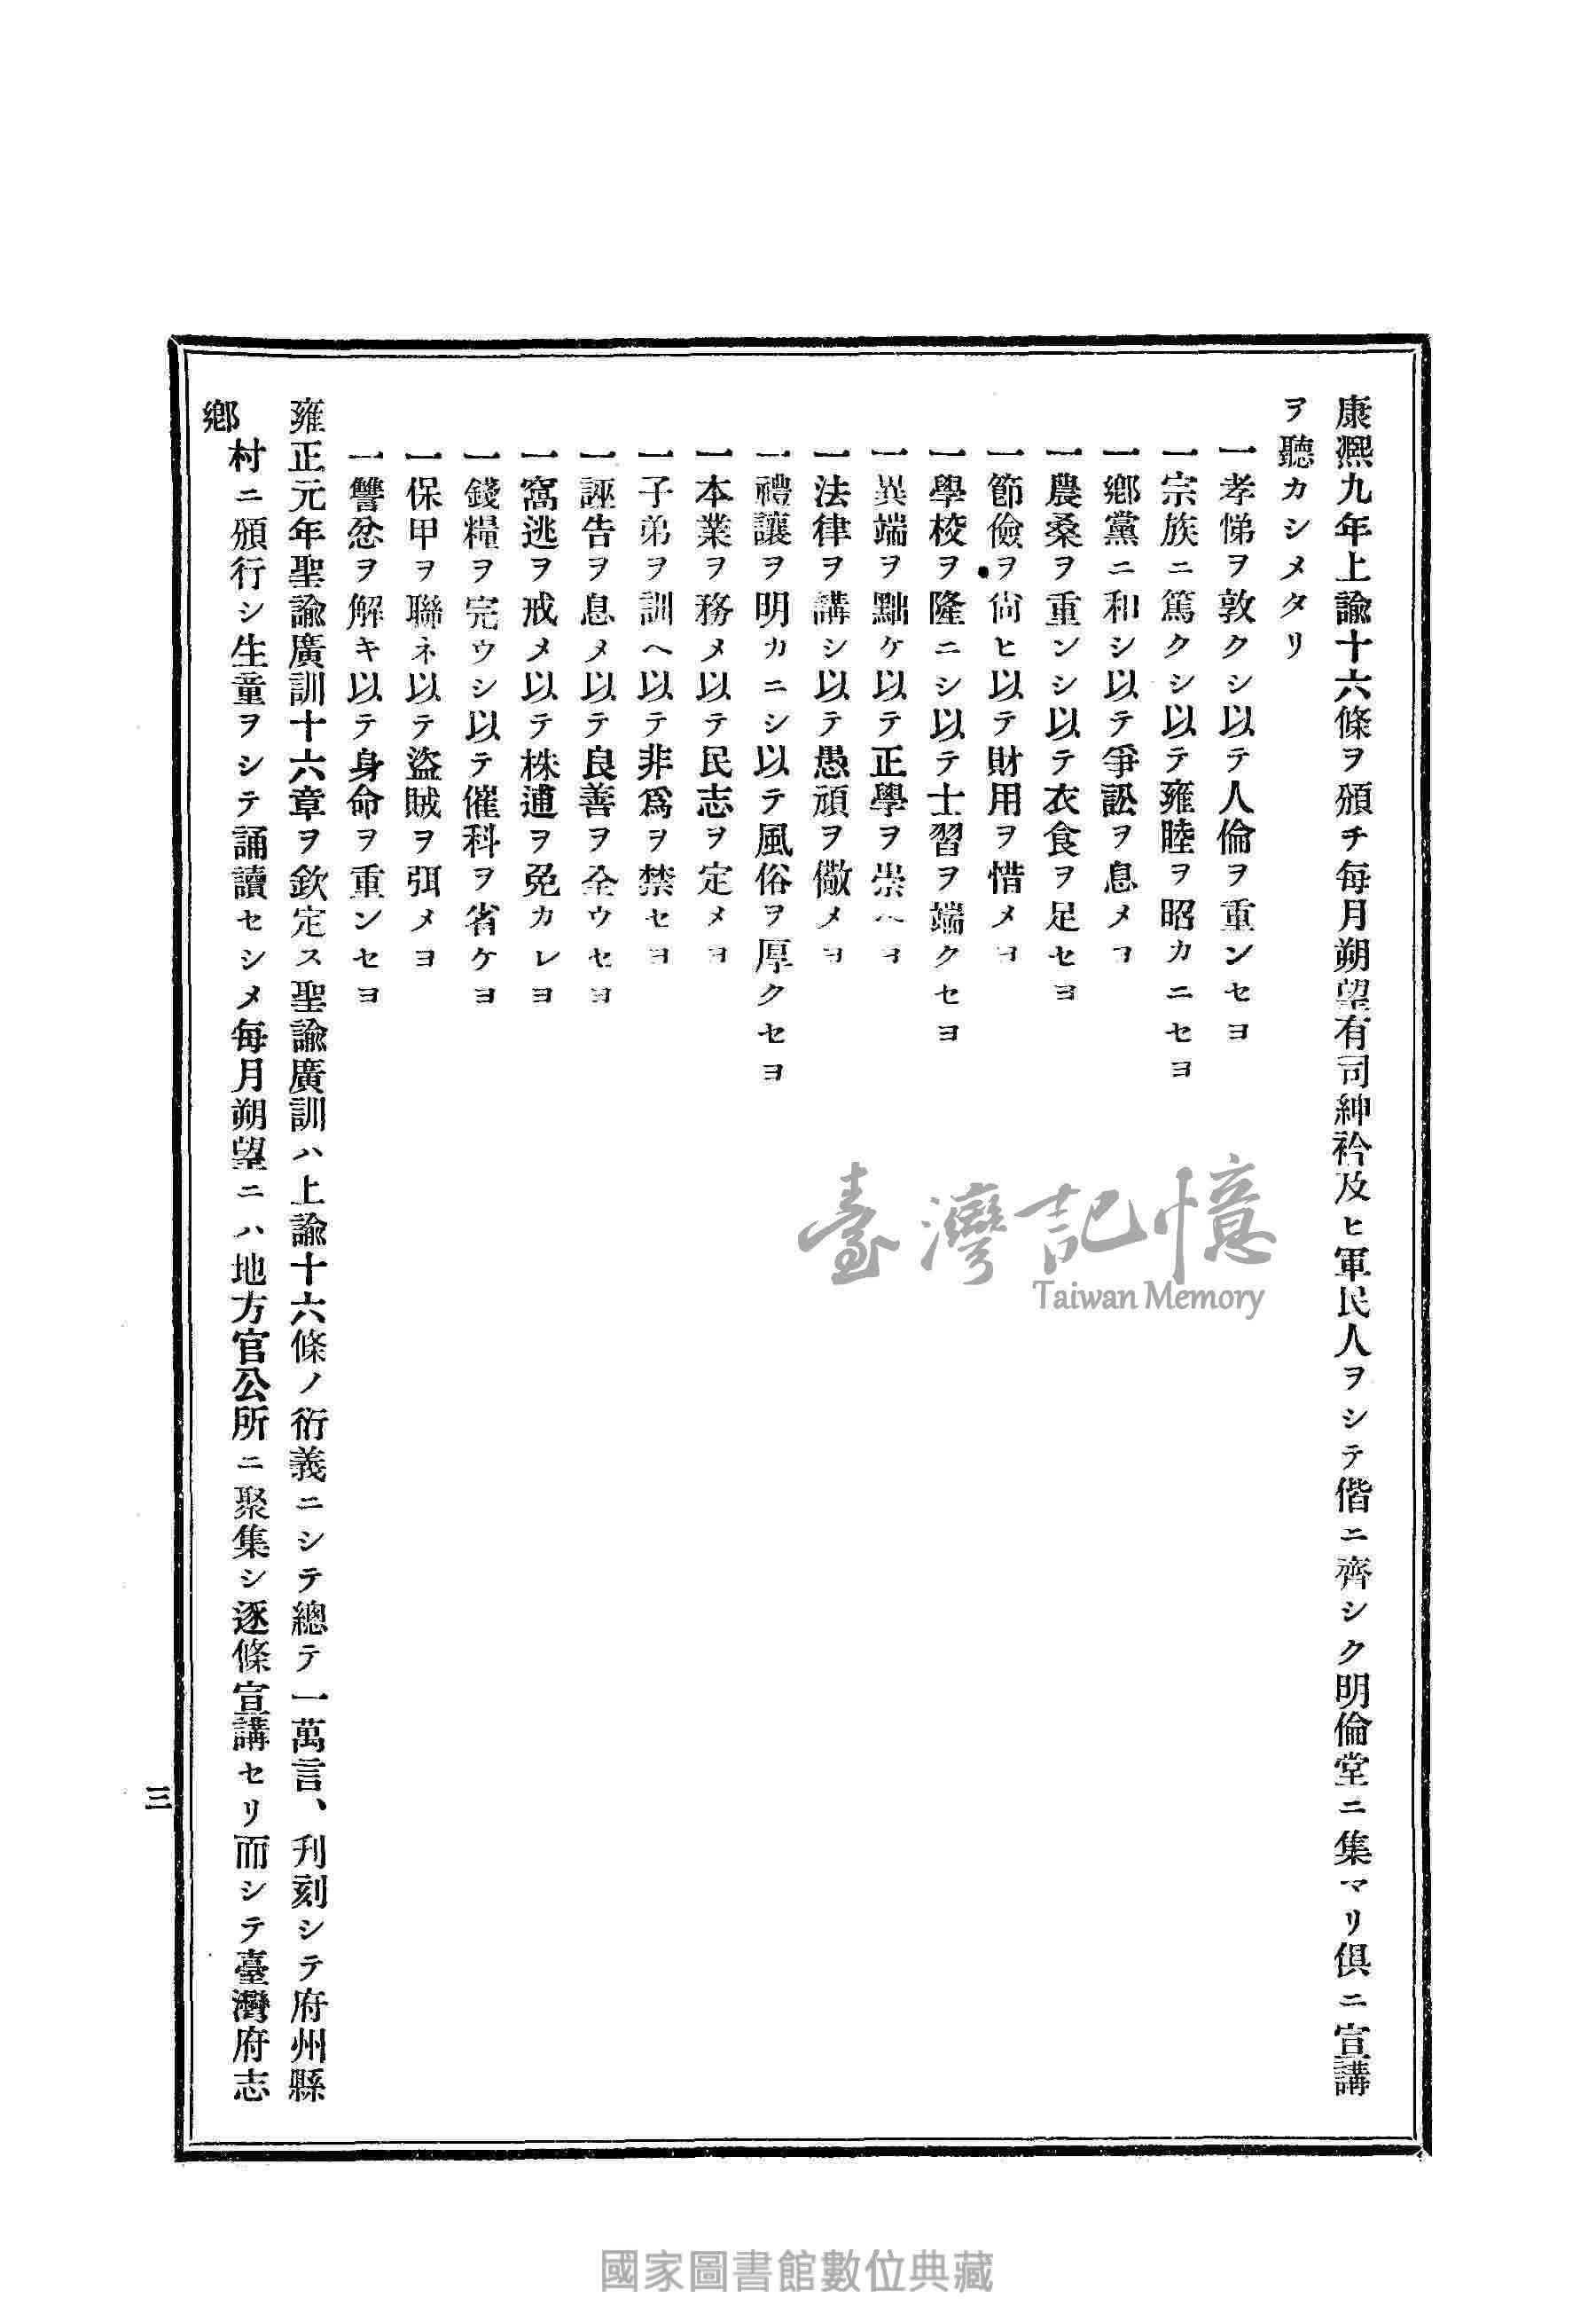 康熙九年上諭十六條ヲ頒チ每月朔望有司紳衿及ヒ軍民人ヲシテ偕ニ齊シク明倫堂ニ集マリ俱ニ宣講
ヲ聽カシメタリ
一孝悌ヲ敦クシ以テ人倫ヲ重ンセヨ
一宗族ニ篤クシ以テ雍睦ヲ昭カニセヨ
一鄕黨ニ和シ以テ爭訟ヲ息メヨ
一農桑ヲ重ンシ以テ衣食ヲ足セヨ
一節儉ヲ尙ヒ以テ財用ヲ惜メヨ
一學校ヲ隆ニシ以テ士習ヲ端クセヨ
一異端ヲ黜ケ以テ正學ヲ崇ヘヨ
一法律ヲ講シ以テ愚頑ヲ儆メヨ
一禮讓ヲ明カニシ以テ風俗ヲ厚クセヨ
一本業ヲ務メ以テ民志ヲ定メヨ
一子弟ヲ訓ヘ以テ非爲ヲ禁セヨ
一誣告ヲ息メ以テ良善ヲ全ウセヨ
一窩逃ヲ戒メ以テ株逋ヲ免カレヨ
一錢糧ヲ完ウシ以テ催科ヲ省ケヨ
一保甲ヲ聯ネ以テ盜賊ヲ弭メヨ
一讐忿ヲ解キ以テ身命ヲ重ンセヨ
雍正元年聖諭廣訓十六章ヲ欽定ス聖諭廣訓ハ上諭十六條ノ衍義ニシテ總テ一萬言、刋刻シテ府州縣
鄕村ニ頒行シ生童ヲシテ誦讀セシメ每月朔望ニハ地方官公所ニ聚集シ逐條宣講セリ而シテ臺灣府志
三
臺灣記憶
Taiwan Memory
國家圖書館數位典藏